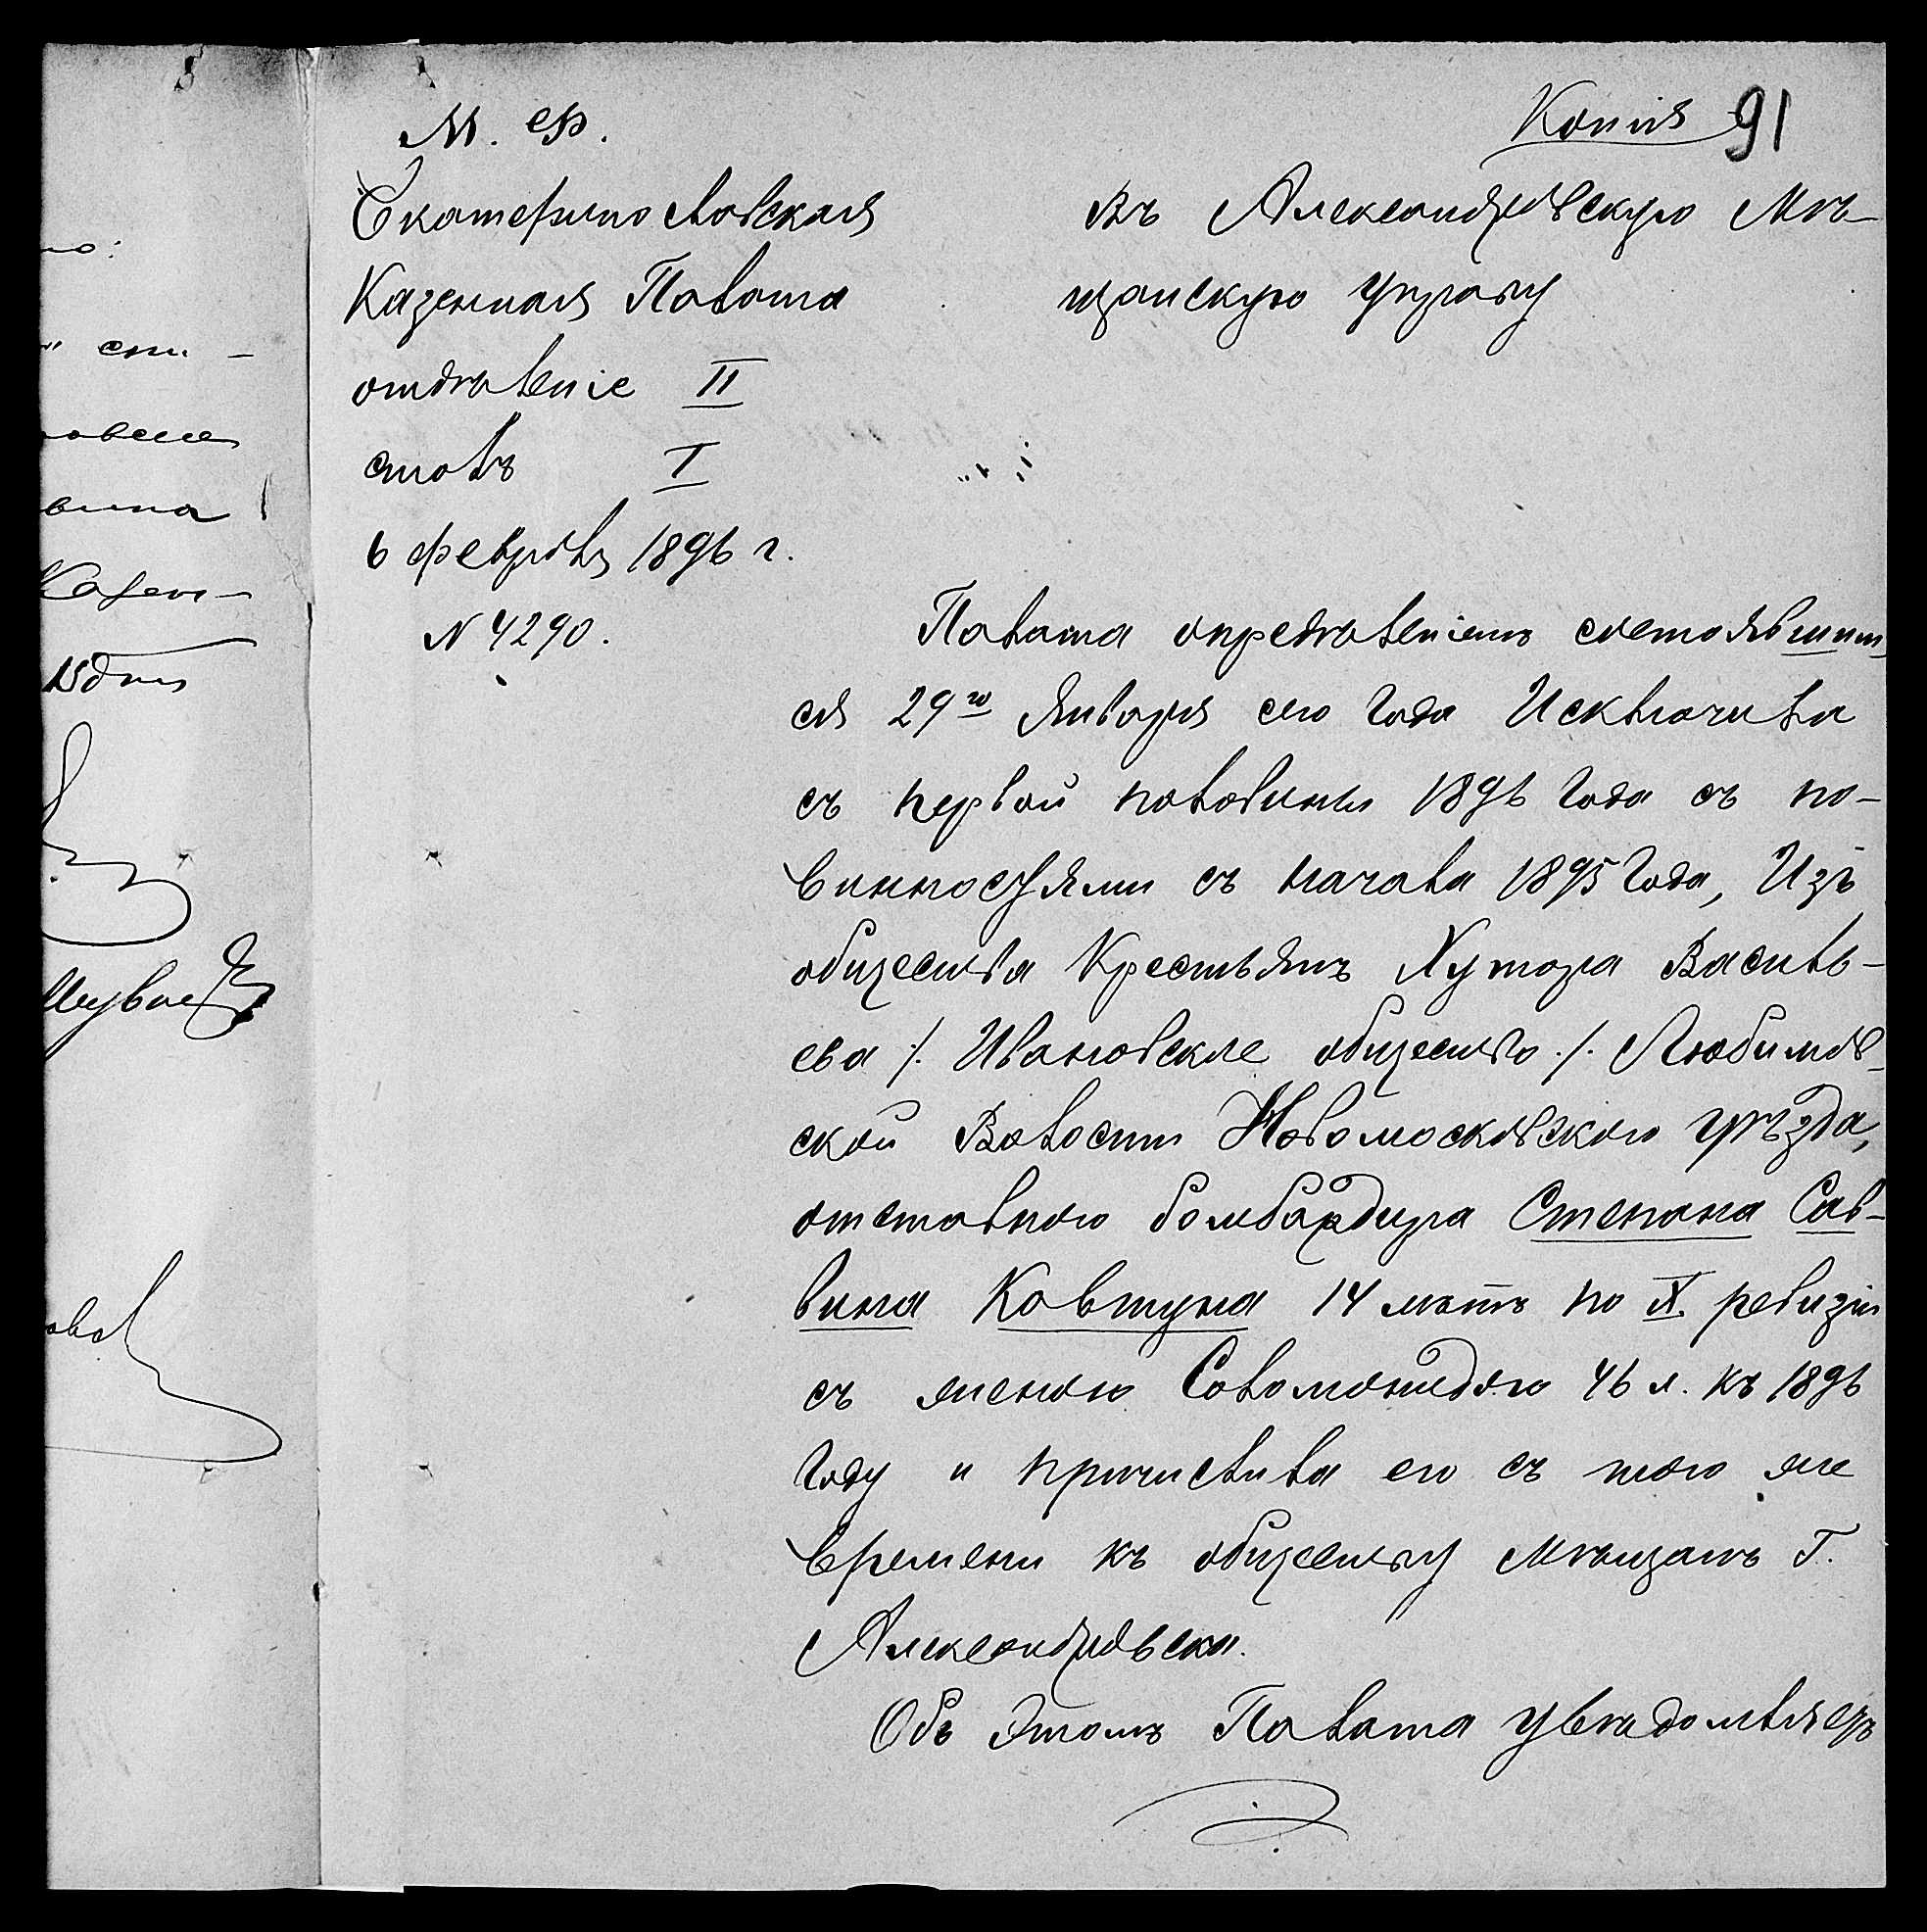 Копія 91
М. Ф.
Екатеринославская
Казенная Палата
отдѣленіе II
столъ I
6 февраля 1896 г.
N 4290.
Въ Александровскую Мѣ-
щанскую Управу
Палата опредѣленіемъ состоявшим-
ся 29го Января сего года Исключила
съ первой половины 1896 года съ по-
винностями съ начала 1895 года, Изъ
общества Крестьянъ Хутора Василь-
ева /. Ивановское общество ./. Любимов-
ской Волости Новомосковскаго уѣзда,
отставного бомбардира Степана Сав-
вина Ковтуна 14 лѣтъ по X. ревизіи
съ женою Соломонидою 46 л. къ 1896
году и причислила его съ того же
времени къ обществу Мѣщанъ Г.
Александровска.
Объ Этомъ Палата увѣдомляетъ